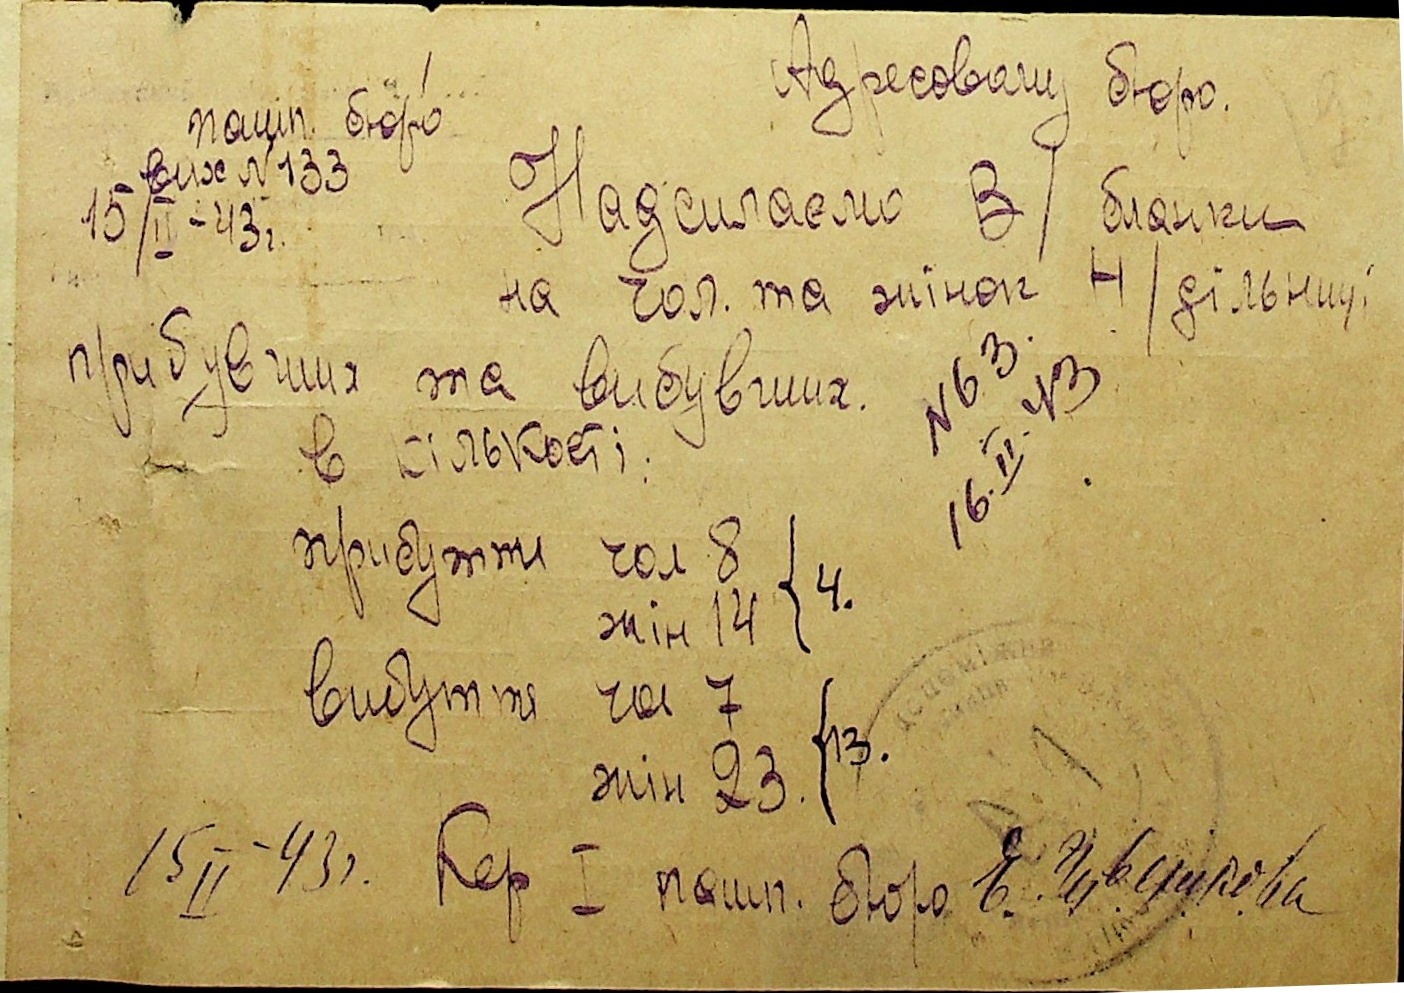 Адресовому бюро.
пашп. бюро
вих № 133
15/II-43г.
Надсилаємо В/ бланки
на чол. та жінок Н/дільниці
прибувших та вибувших.
в кількості:
N 63.
16.II.43
прибуття чол 8
жін 14 } 4.
вибуття чол 7
жін 23. } 13.
15/II-43г. Кер I пашп. бюро Е.